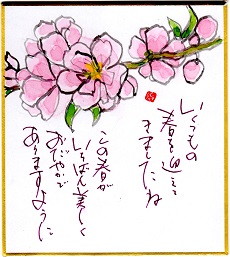 いくつもの
春を迎えて
きましたね
この春が
いちばん美しく
おだやかで
ありますように